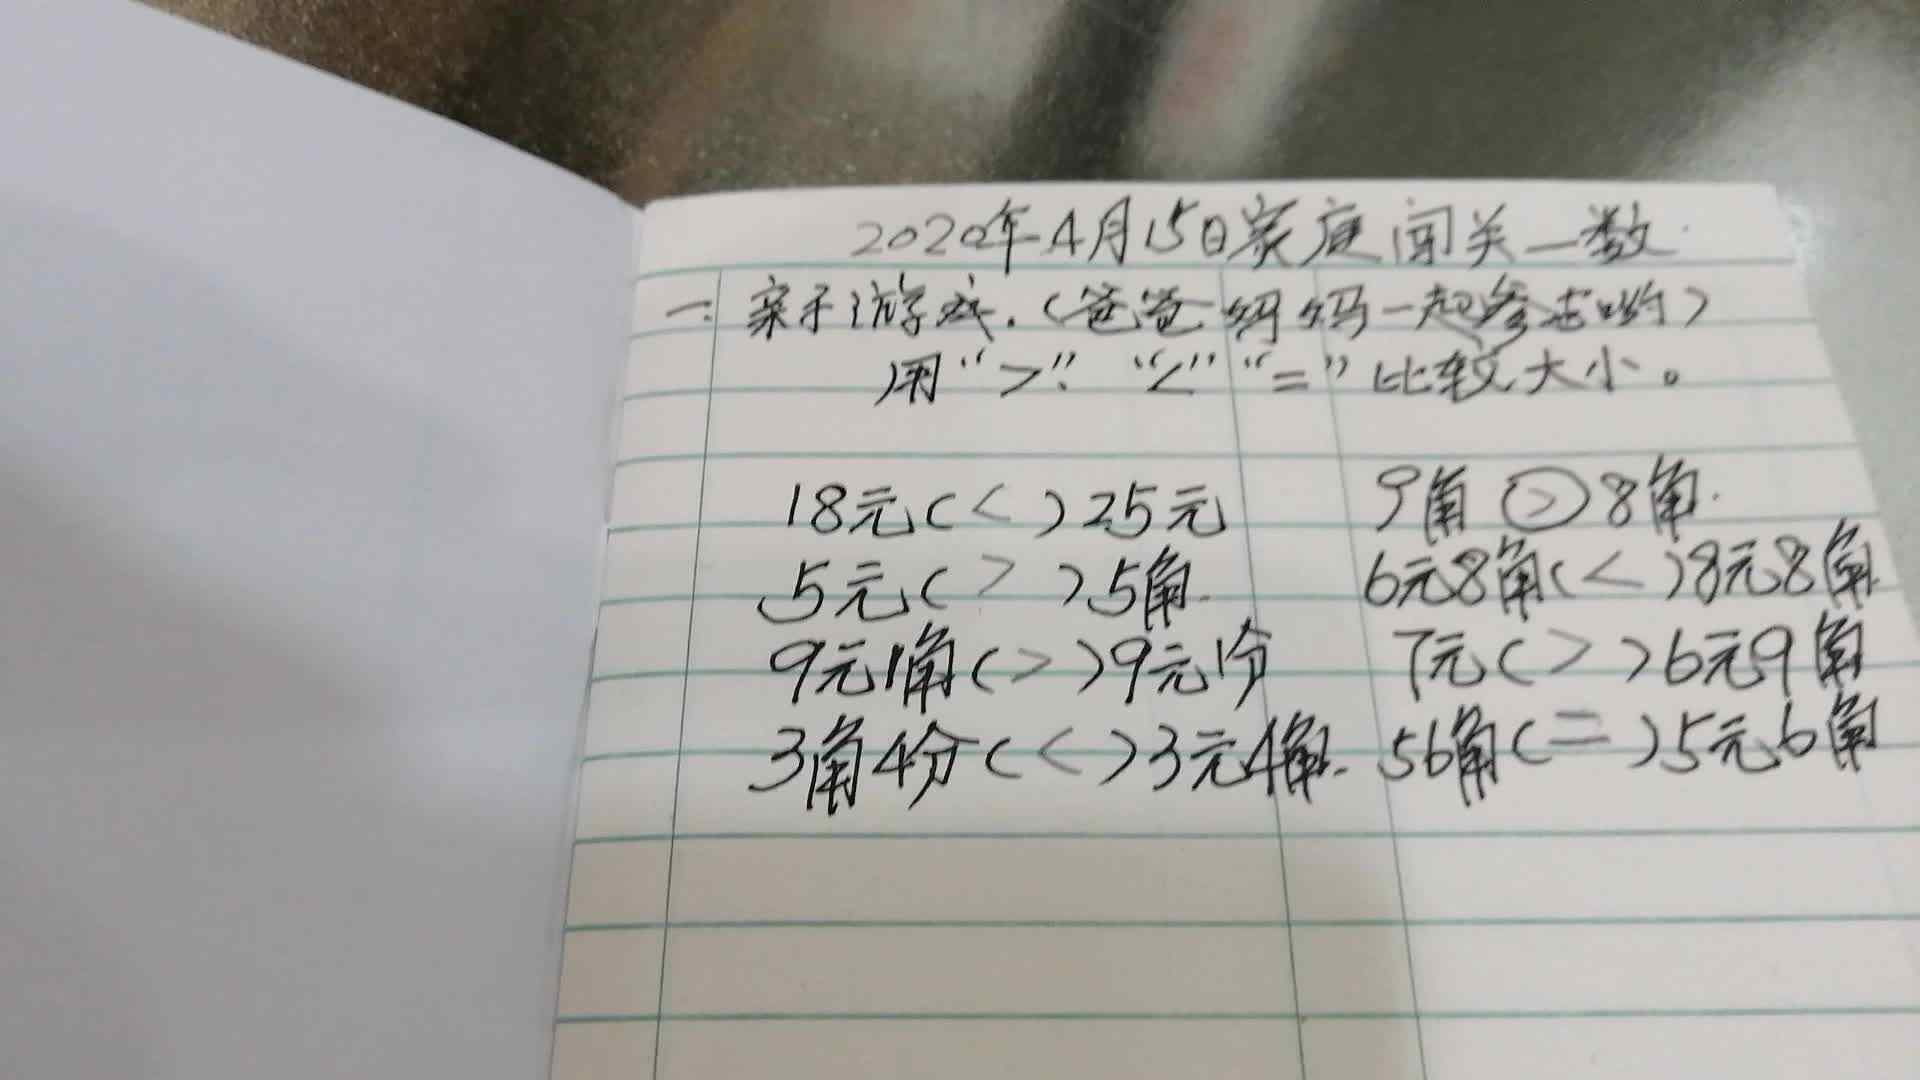 2020年4月15日家庭闯关—数
一:亲子游戏.(爸爸妈妈一起参与哟)
用“>”.“<”“=”比较大小。
18元(<)25元 9角(>)8角.
5元(>)5角. 6元8角(<)8元8角.
9元1角(>)9元1分 7元(>)6元9角
3角4分(<)3元4角. 56角(=)5元6角